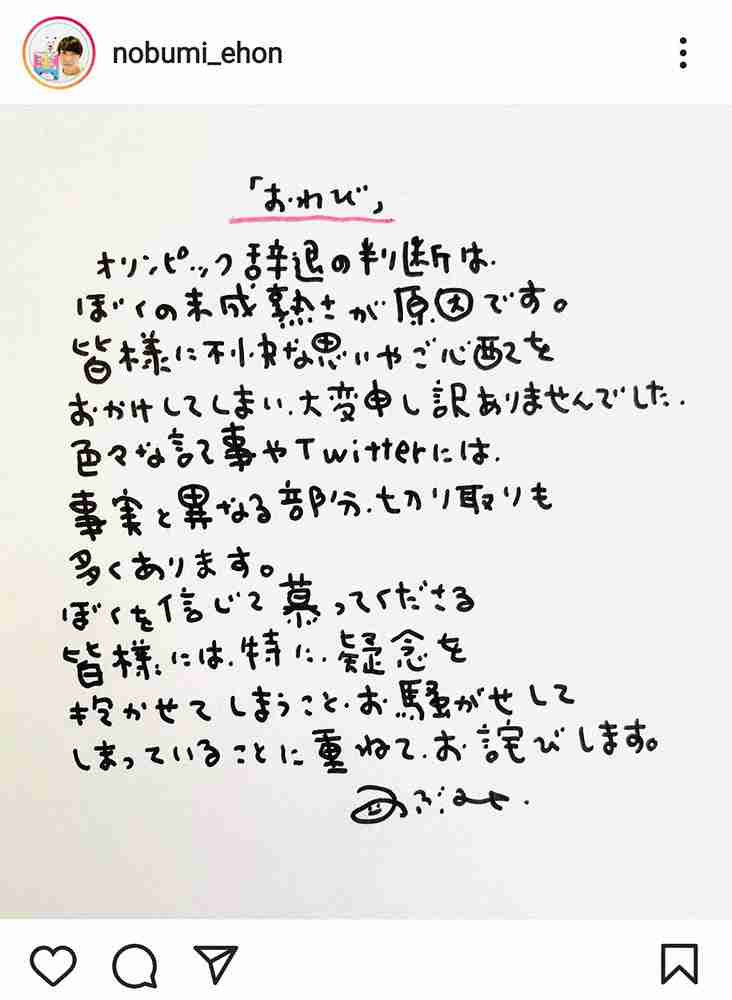 nobumi_ehon
「おわび」
オリンピック辞退の判断は、
ぼくの未成熟さが原因です。
皆様に不快な思いやご心配を
おかけしてしまい、大変申し訳ありませんでした.
色々な記事やTwitterには、
事実と異なる部分、切り取りも
多くあります。
ぼくを信じて慕ってくださる
皆様には、特に、疑念を
抱かせてしまうこと、お騒がせして
しまっていることに重ねて、お詫びします。
のぶみ.